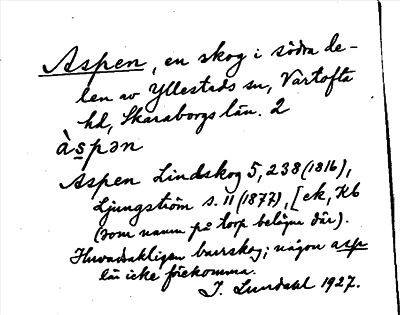 Aspen, en skog i södra de-
len av Yllestads sn, Vartofta
hd, Skaraborgs län. 2
àspən
Aspen Lindskog 5, 238 (1816),
Ljungström s. 11 (1877), [ek, Kb
(som namn på torp belägna där).
Huvudsakligen barrskog; någon asp
lär icke förekomma.
J. Lundahl 1927.